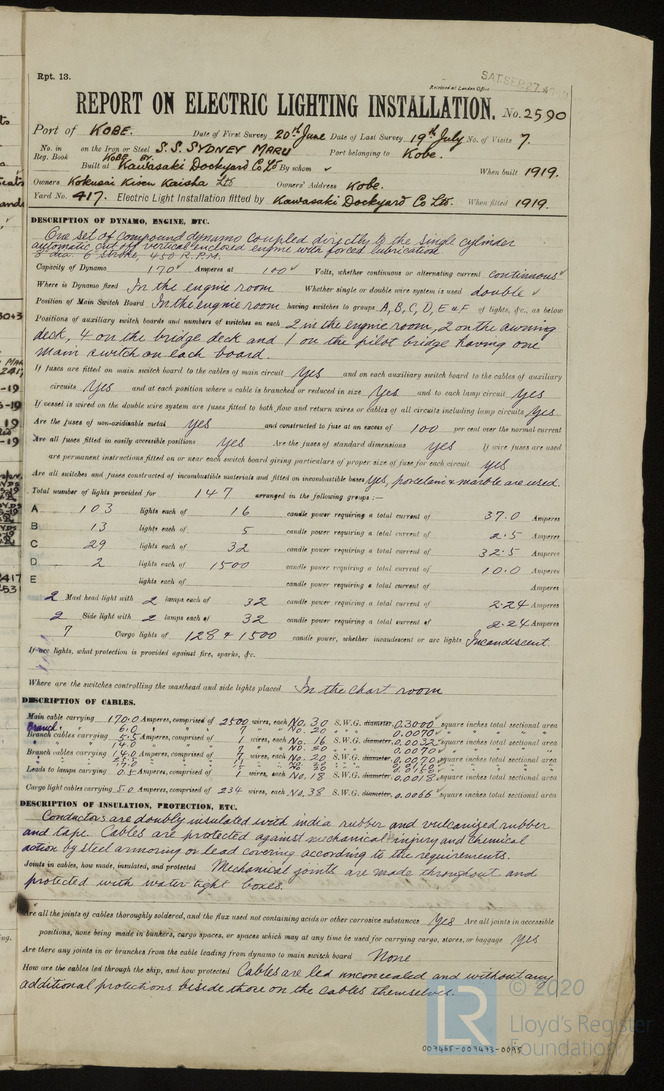 Rpt. 13.
SAT. SEP. 27
Received at London Office
REPORT ON ELECTRIC LIGHTING INSTALLATION. No. 2590
Port of KOBE. Date of First Survey 20th June Date of Last Survey 19th July No. of Visits 7.
No. in on the Iron or Steel S.S. SYDNEY MARU Port belonging to Kobe.
Reg. Book
Built at Kobe By Kawasaki Dockyard Co Ltd By whom When built 1919.
Owners Kokusai Kisen Kaisha Ltd Owners' Address Kobe.
Yard No. 417. Electric Light Installation fitted by Kawasaki Dockyard Co Ltd. When fitted 1919.
DESCRIPTION OF DYNAMO, ENGINE, ETC.
One set of compound dynamo coupled directly to the single cylinder
automatic cut off vertical enclosed engine with forced lubrication
8 dia. 6 stroke, 450 R.P.M.
Capacity of Dynamo 170 Amperes at 100 Volts, whether continuous or alternating current continuous
Where is Dynamo fixed In the engine room Whether single or double wire system is used double
Position of Main Switch Board In the engine room having switches to groups A, B, C, D, E & F of lights, &c., as below
Positions of auxiliary switch boards and numbers of switches on each 2 in the engine room, 2 on the awning
deck, 4 on the bridge deck and 1 on the pilot bridge having one
main switch on each board.
If fuses are fitted on main switch board to the cables of main circuit Yes and on each auxiliary switch board to the cables of auxiliary
circuits Yes and at each position where a cable is branched or reduced in size Yes and to each lamp circuit Yes
If vessel is wired on the double wire system are fuses fitted to both flow and return wires or cables of all circuits including lamp circuits Yes
Are the fuses of non-oxidizable metal Yes and constructed to fuse at an excess of 100 per cent over the normal current
Are all fuses fitted in easily accessible positions Yes Are the fuses of standard dimensions Yes If wire fuses are used
are permanent instructions fitted on or near each switch board giving particulars of proper size of fuse for each circuit Yes
Are all switches and fuses constructed of incombustible materials and fitted on incombustible bases Yes, porcelain & marble are used.
Total number of lights provided for 147 arranged in the following groups :—
A 103 lights each of 16 candle power requiring a total current of 37.0 Amperes
B 13 lights each of 5 candle power requiring a total current of 2.5 Amperes
C 29 lights each of 32 candle power requiring a total current of 32.5 Amperes
D 2 lights each of 1500 candle power requiring a total current of 10.0 Amperes
E lights each of candle power requiring a total current of Amperes
2 Mast head light with 2 lamps each of 32 candle power requiring a total current of 2.24 Amperes
2 Side light with 2 lamps each of 32 candle power requiring a total current of 2.24 Amperes
7 Cargo lights of 128 & 1500 candle power, whether incandescent or arc lights Incandescent
If arc lights, what protection is provided against fire, sparks, &c.
Where are the switches controlling the masthead and side lights placed In the Chart room
DESCRIPTION OF CABLES.
Main cable carrying 170.0 Amperes, comprised of 2500 wires, each No. 30 S.W.G. diameter, 0.3000 square inches total sectional area
Branch 6.0 7 No. 20 0.0070
Branch cables carrying 5.5 Amperes, comprised of 1 wires, each No. 16 S.W.G. diameter, 0.0032 square inches total sectional area
14.0 7 No. 20 0.0070
Branch cables carrying 14.0 Amperes, comprised of 7 wires, each No. 20 S.W.G. diameter, 0.0070 square inches total sectional area
Leads to lamps carrying 0.5 Amperes, comprised of 1 wires, each No. 18 S.W.G. diameter, 0.0018 square inches total sectional area
Cargo light cables carrying 5.0 Amperes, comprised of 234 wires, each No. 38 S.W.G. diameter, 0.0066 square inches total sectional area
DESCRIPTION OF INSULATION, PROTECTION, ETC.
Conductors are doubly insulated with india rubber and vulcanized rubber
and tape. Cables are protected against mechanical injury and chemical
action by steel armoring or lead covering according to the requirements.
Joints in cables, how made, insulated, and protected Mechanical joints are made throughout and
protected with water tight boxes.
Are all the joints of cables thoroughly soldered, and the flux used not containing acids or other corrosive substances Yes Are all joints in accessible
positions, none being made in bunkers, cargo spaces, or spaces which may at any time be used for carrying cargo, stores, or baggage Yes
Are there any joints in or branches from the cable leading from dynamo to main switch board None
How are the cables led through the ship, and how protected Cables are led unconcealed and without any
additional protections beside those on the cables themselves.
© 2020
Lloyd's Register
Foundation
007465-007473-0095